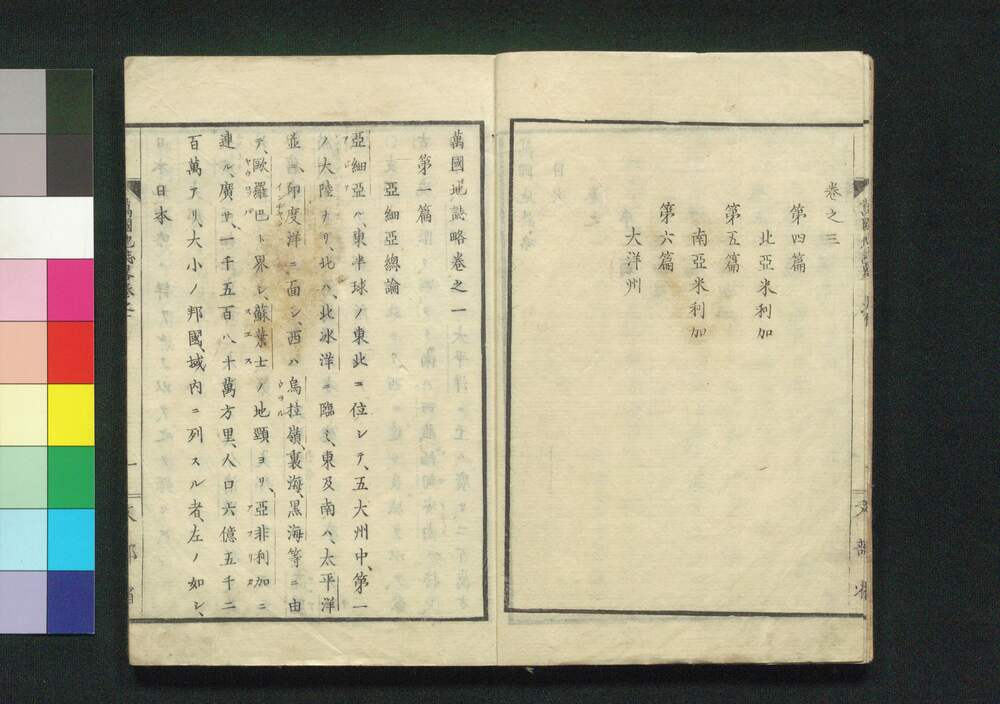 卷之三
第四篇
北亞米利加
第五篇
南亞米利加
第六篇
大洋州
文部省
萬國地誌略卷之一
第一篇
亞細亞總論
亞細亞ハ、東半球ノ東北ニ位シテ、五大州中、第一
ノ大陸ナリ、北ハ、北冰洋ニ臨ミ、東及南ハ、太平洋
並ニ、印度洋ニ面シ、西ハ烏拉嶺、裏海、黒海等ニ由
テ、歐羅巴ト界シ、蘇葉士ノ地頸ヨリ、亞非利加ニ
連ル、廣サ、一千五百八十萬方里、人口六億五千二
百萬アリ、大小ノ邦國、域内ニ列スル者、左ノ如シ、
日本
萬國地誌略卷之一
一
文部省